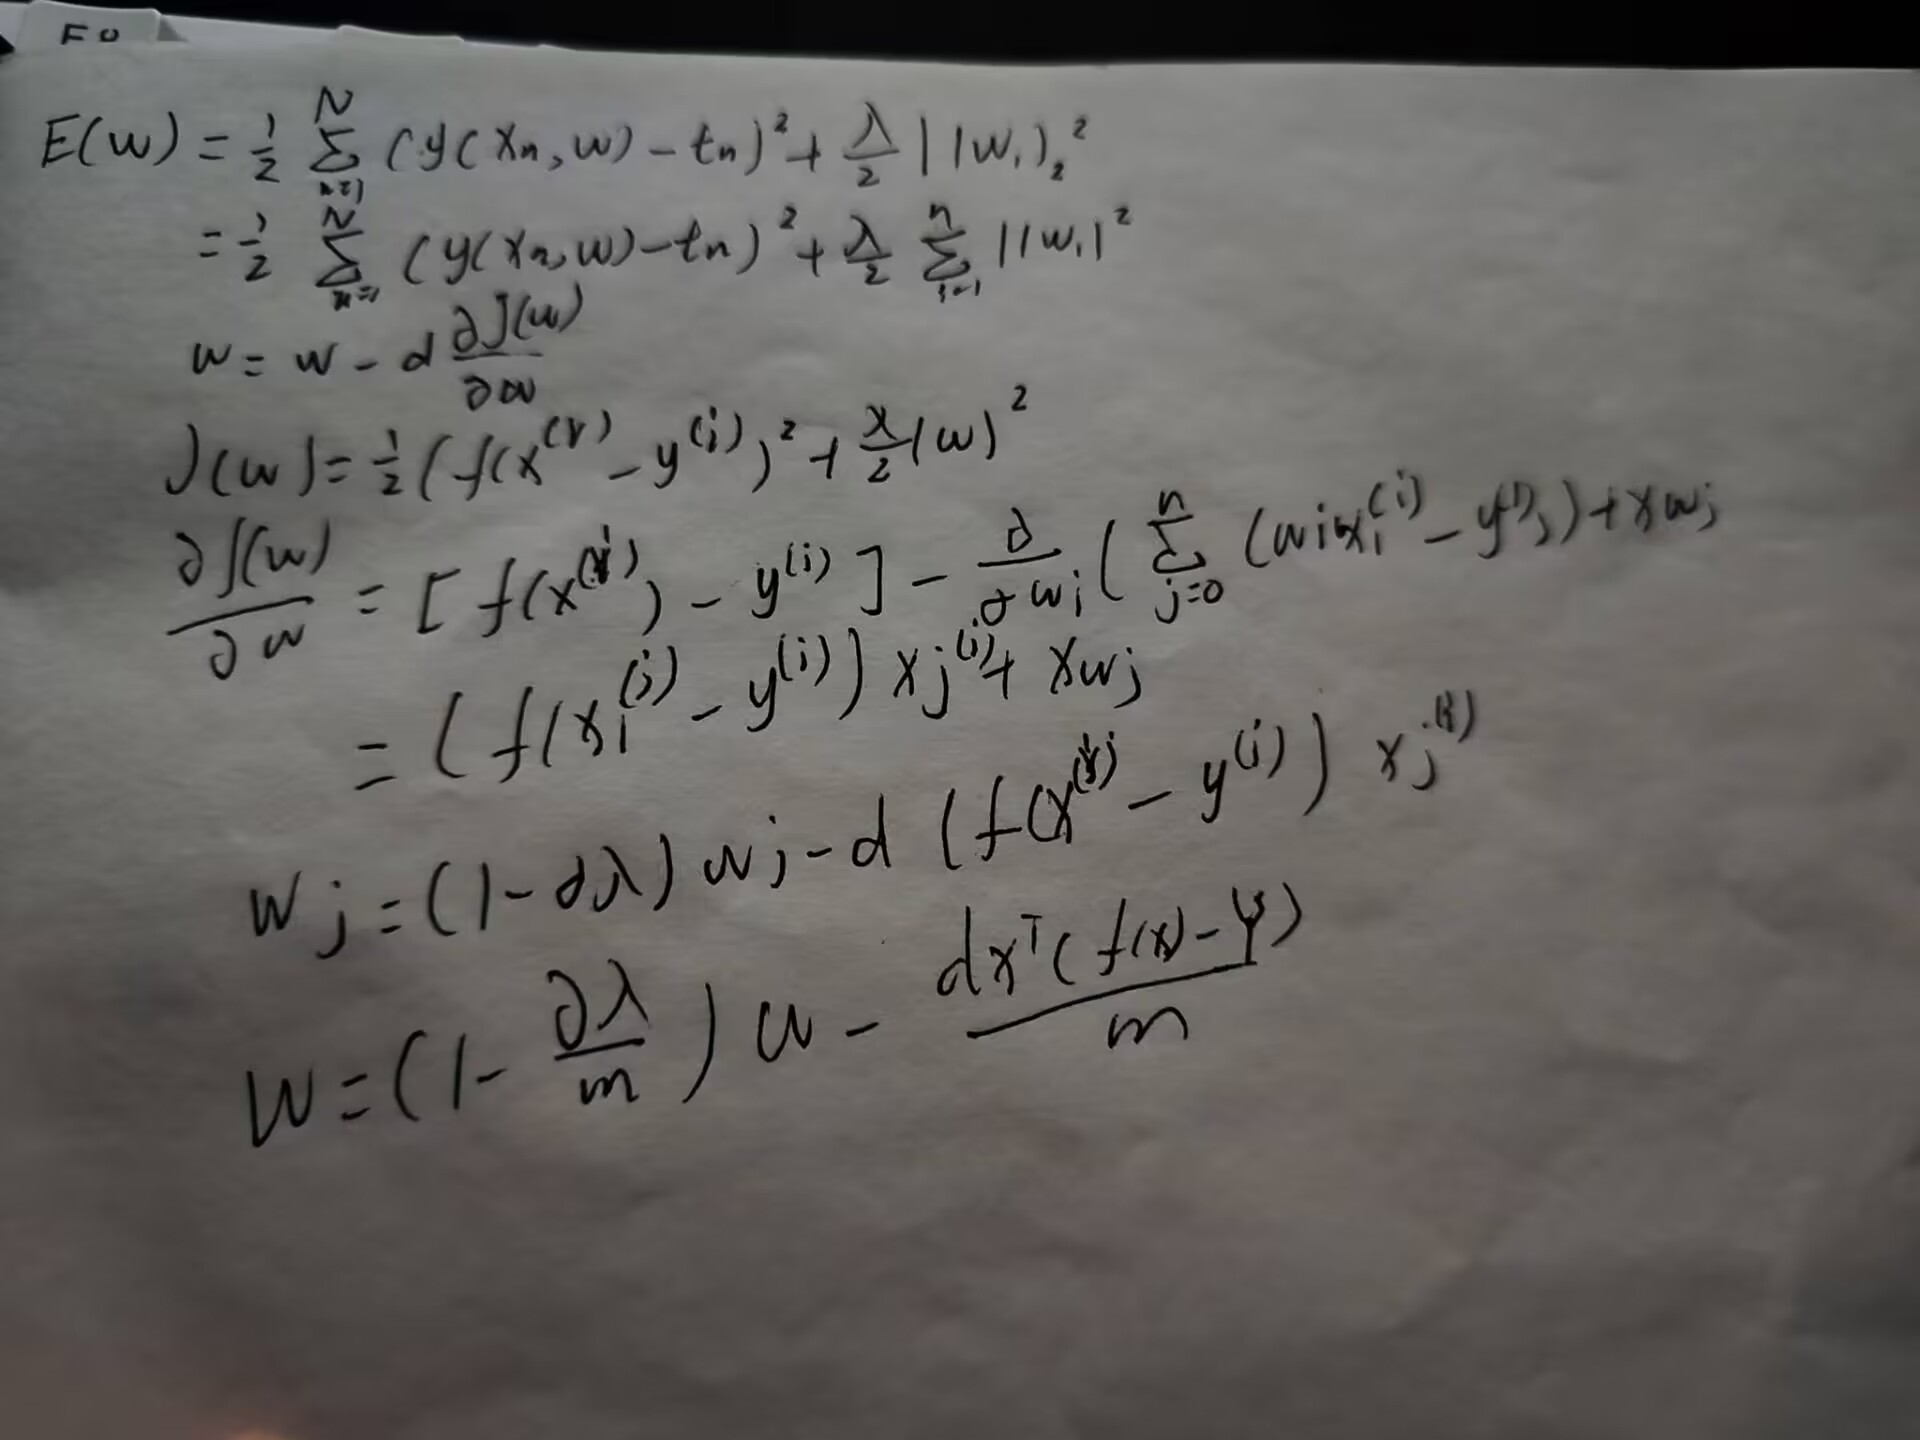 E(w) = 1/2 Σ_{n=1}^{N} (y(xn, w) - tn)² + λ/2 ||w1)₂²
= 1/2 Σ_{n=1}^{N} (y(xn, w) - tn)² + λ/2 Σ_{i=1}^{n} ||w1|²
w = w - d ∂J(w)/∂w
J(w) = 1/2 (f(x^(i) - y^(i))² + x/2 (w)²
∂J(w)/∂w = [f(x^(i)) - y^(i)] - ∂/∂wj (Σ_{j=0}^{n} (wi xi^(i) - y^(i))) + xwj
= (f(xi^(i) - y^(i)) xj^(i) + xwj
wj = (1 - dλ) wj - d (f(x^(i) - y^(i)) xj^(i)
W = (1 - ∂λ/m) w - dx^T(f(x) - Y)/m